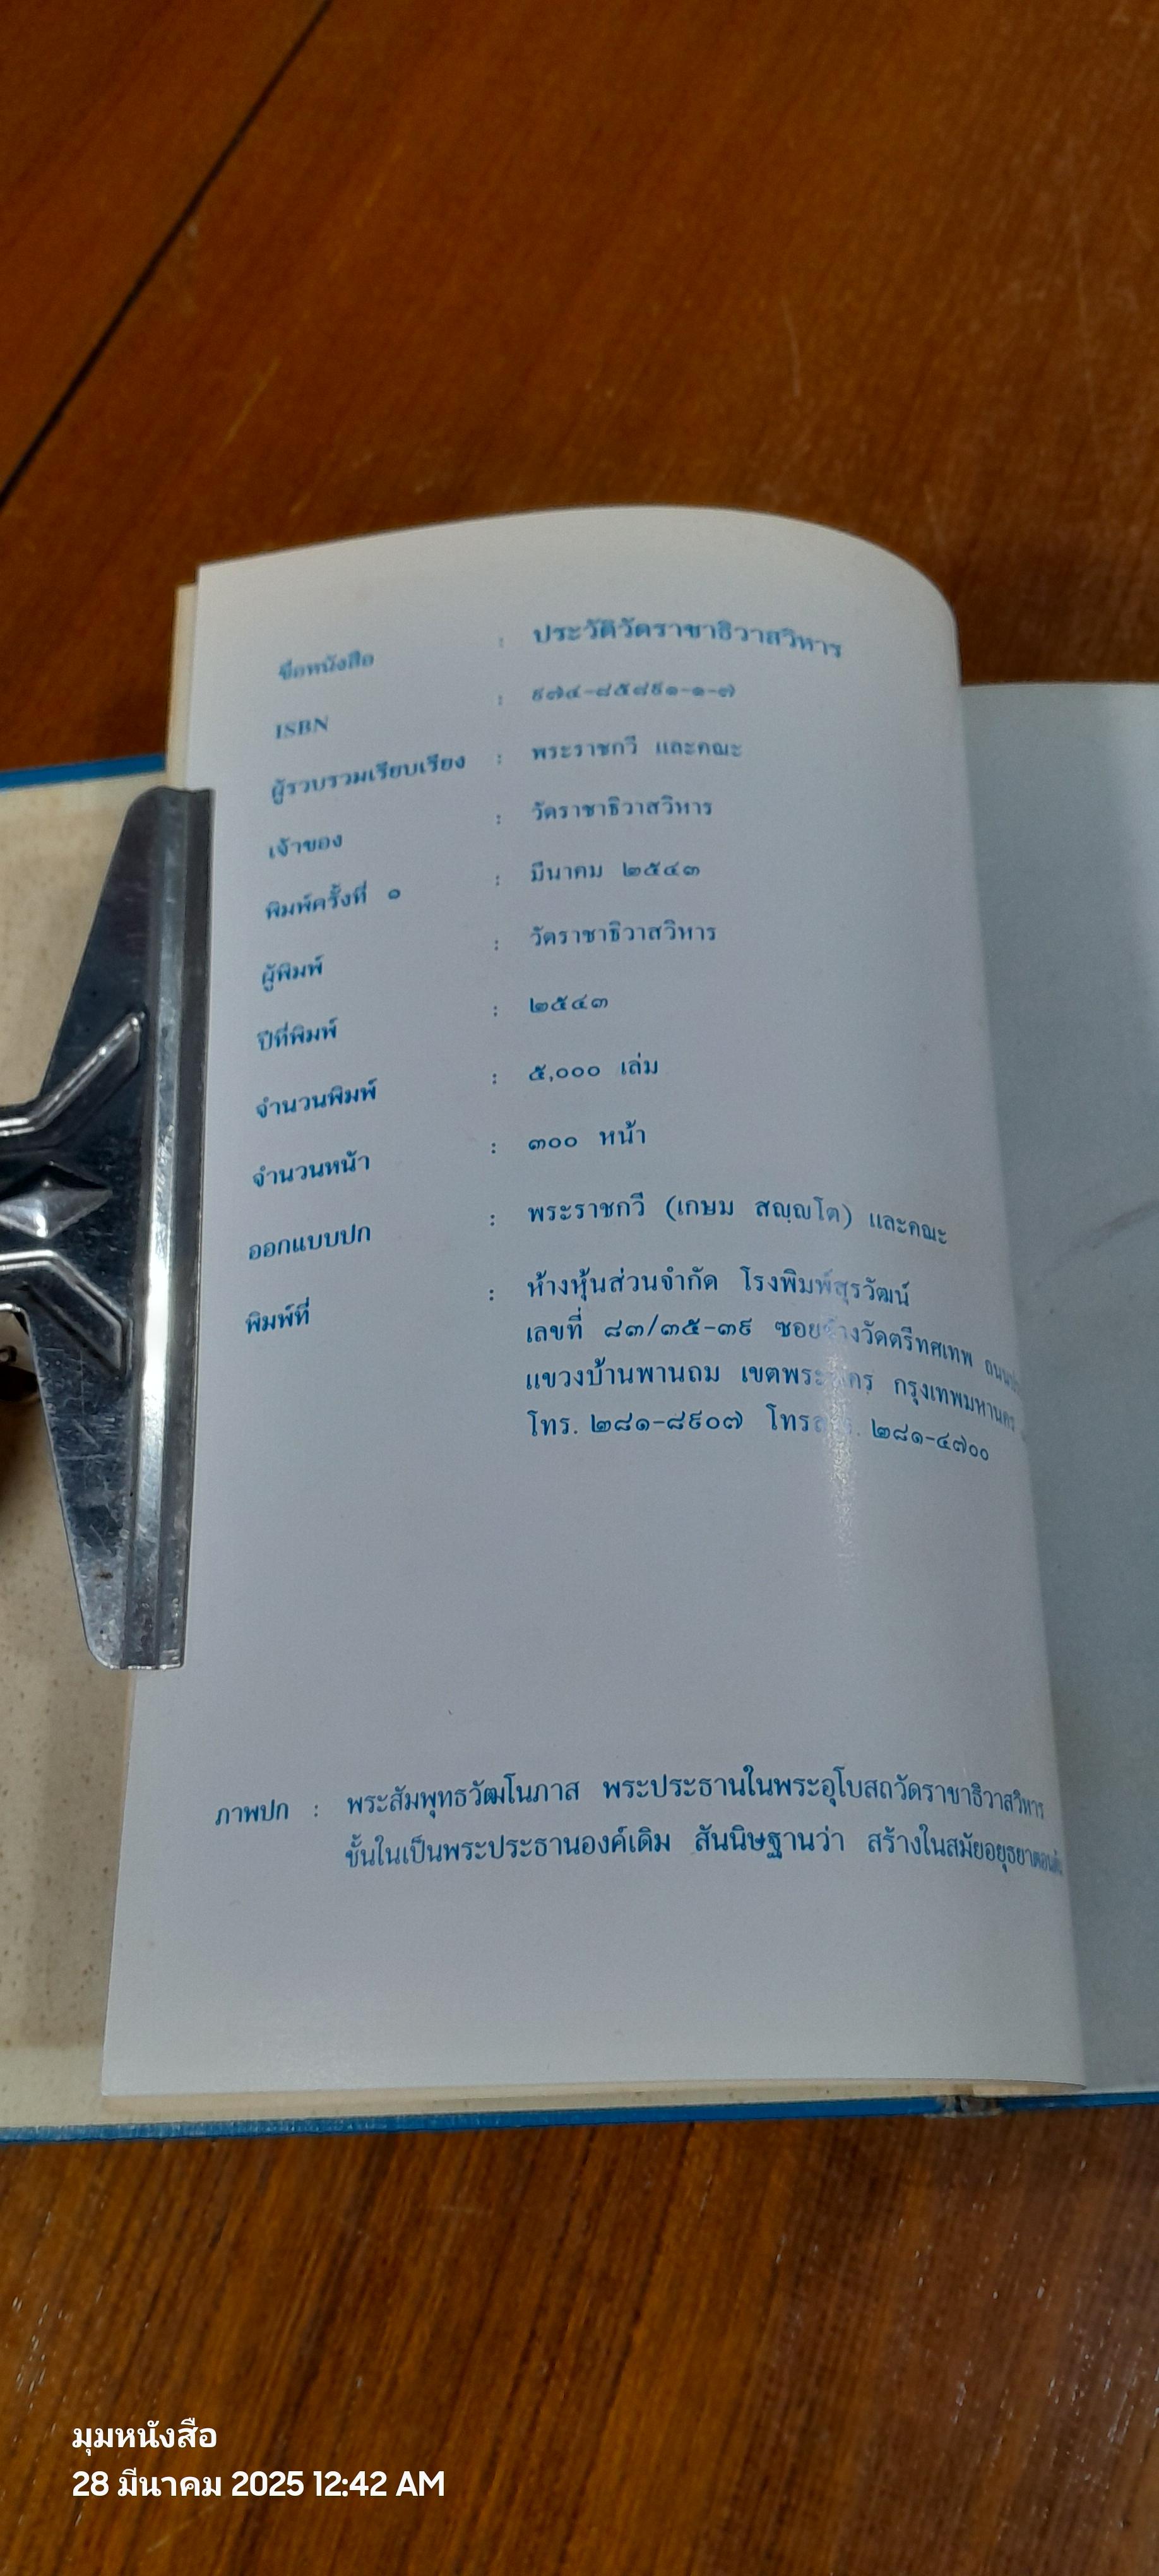 ชื่อหนังสือ : ประวัติวัดราชาธิวาสวิหาร
ISBN : ๙๗๔-๘๕๘๙๑-๑-๗
ผู้รวบรวมเรียบเรียง : พระราชกวี และคณะ
เจ้าของ : วัดราชาธิวาสวิหาร
พิมพ์ครั้งที่ ๑ : มีนาคม ๒๕๔๓
ผู้พิมพ์ : วัดราชาธิวาสวิหาร
ปีที่พิมพ์ : ๒๕๔๓
จำนวนพิมพ์ : ๕,๐๐๐ เล่ม
จำนวนหน้า : ๓๐๐ หน้า
ออกแบบปก : พระราชกวี (เกษม สญฺญโต) และคณะ
พิมพ์ที่ : ห้างหุ้นส่วนจำกัด โรงพิมพ์สุรวัฒน์
เลขที่ ๘๓/๓๕-๓๙ ซอยข้างวัดตรีทศเทพ
แขวงบ้านพานถม เขตพระนคร กรุงเทพมหานคร
โทร. ๒๘๑-๘๙๐๗ ๒๘๑-๔๗๐๐
ภาพปก : พระสัมพุทธวัฒโนภาส พระประธานในพระอุโบสถวัดราชาธิวาสวิหาร
ชั้นในเป็นพระประธานองค์เดิม สันนิษฐานว่า สร้างในสมัยอยุธยาตอนต้น
มุมหนังสือ
28 มีนาคม 2025 12:42 AM